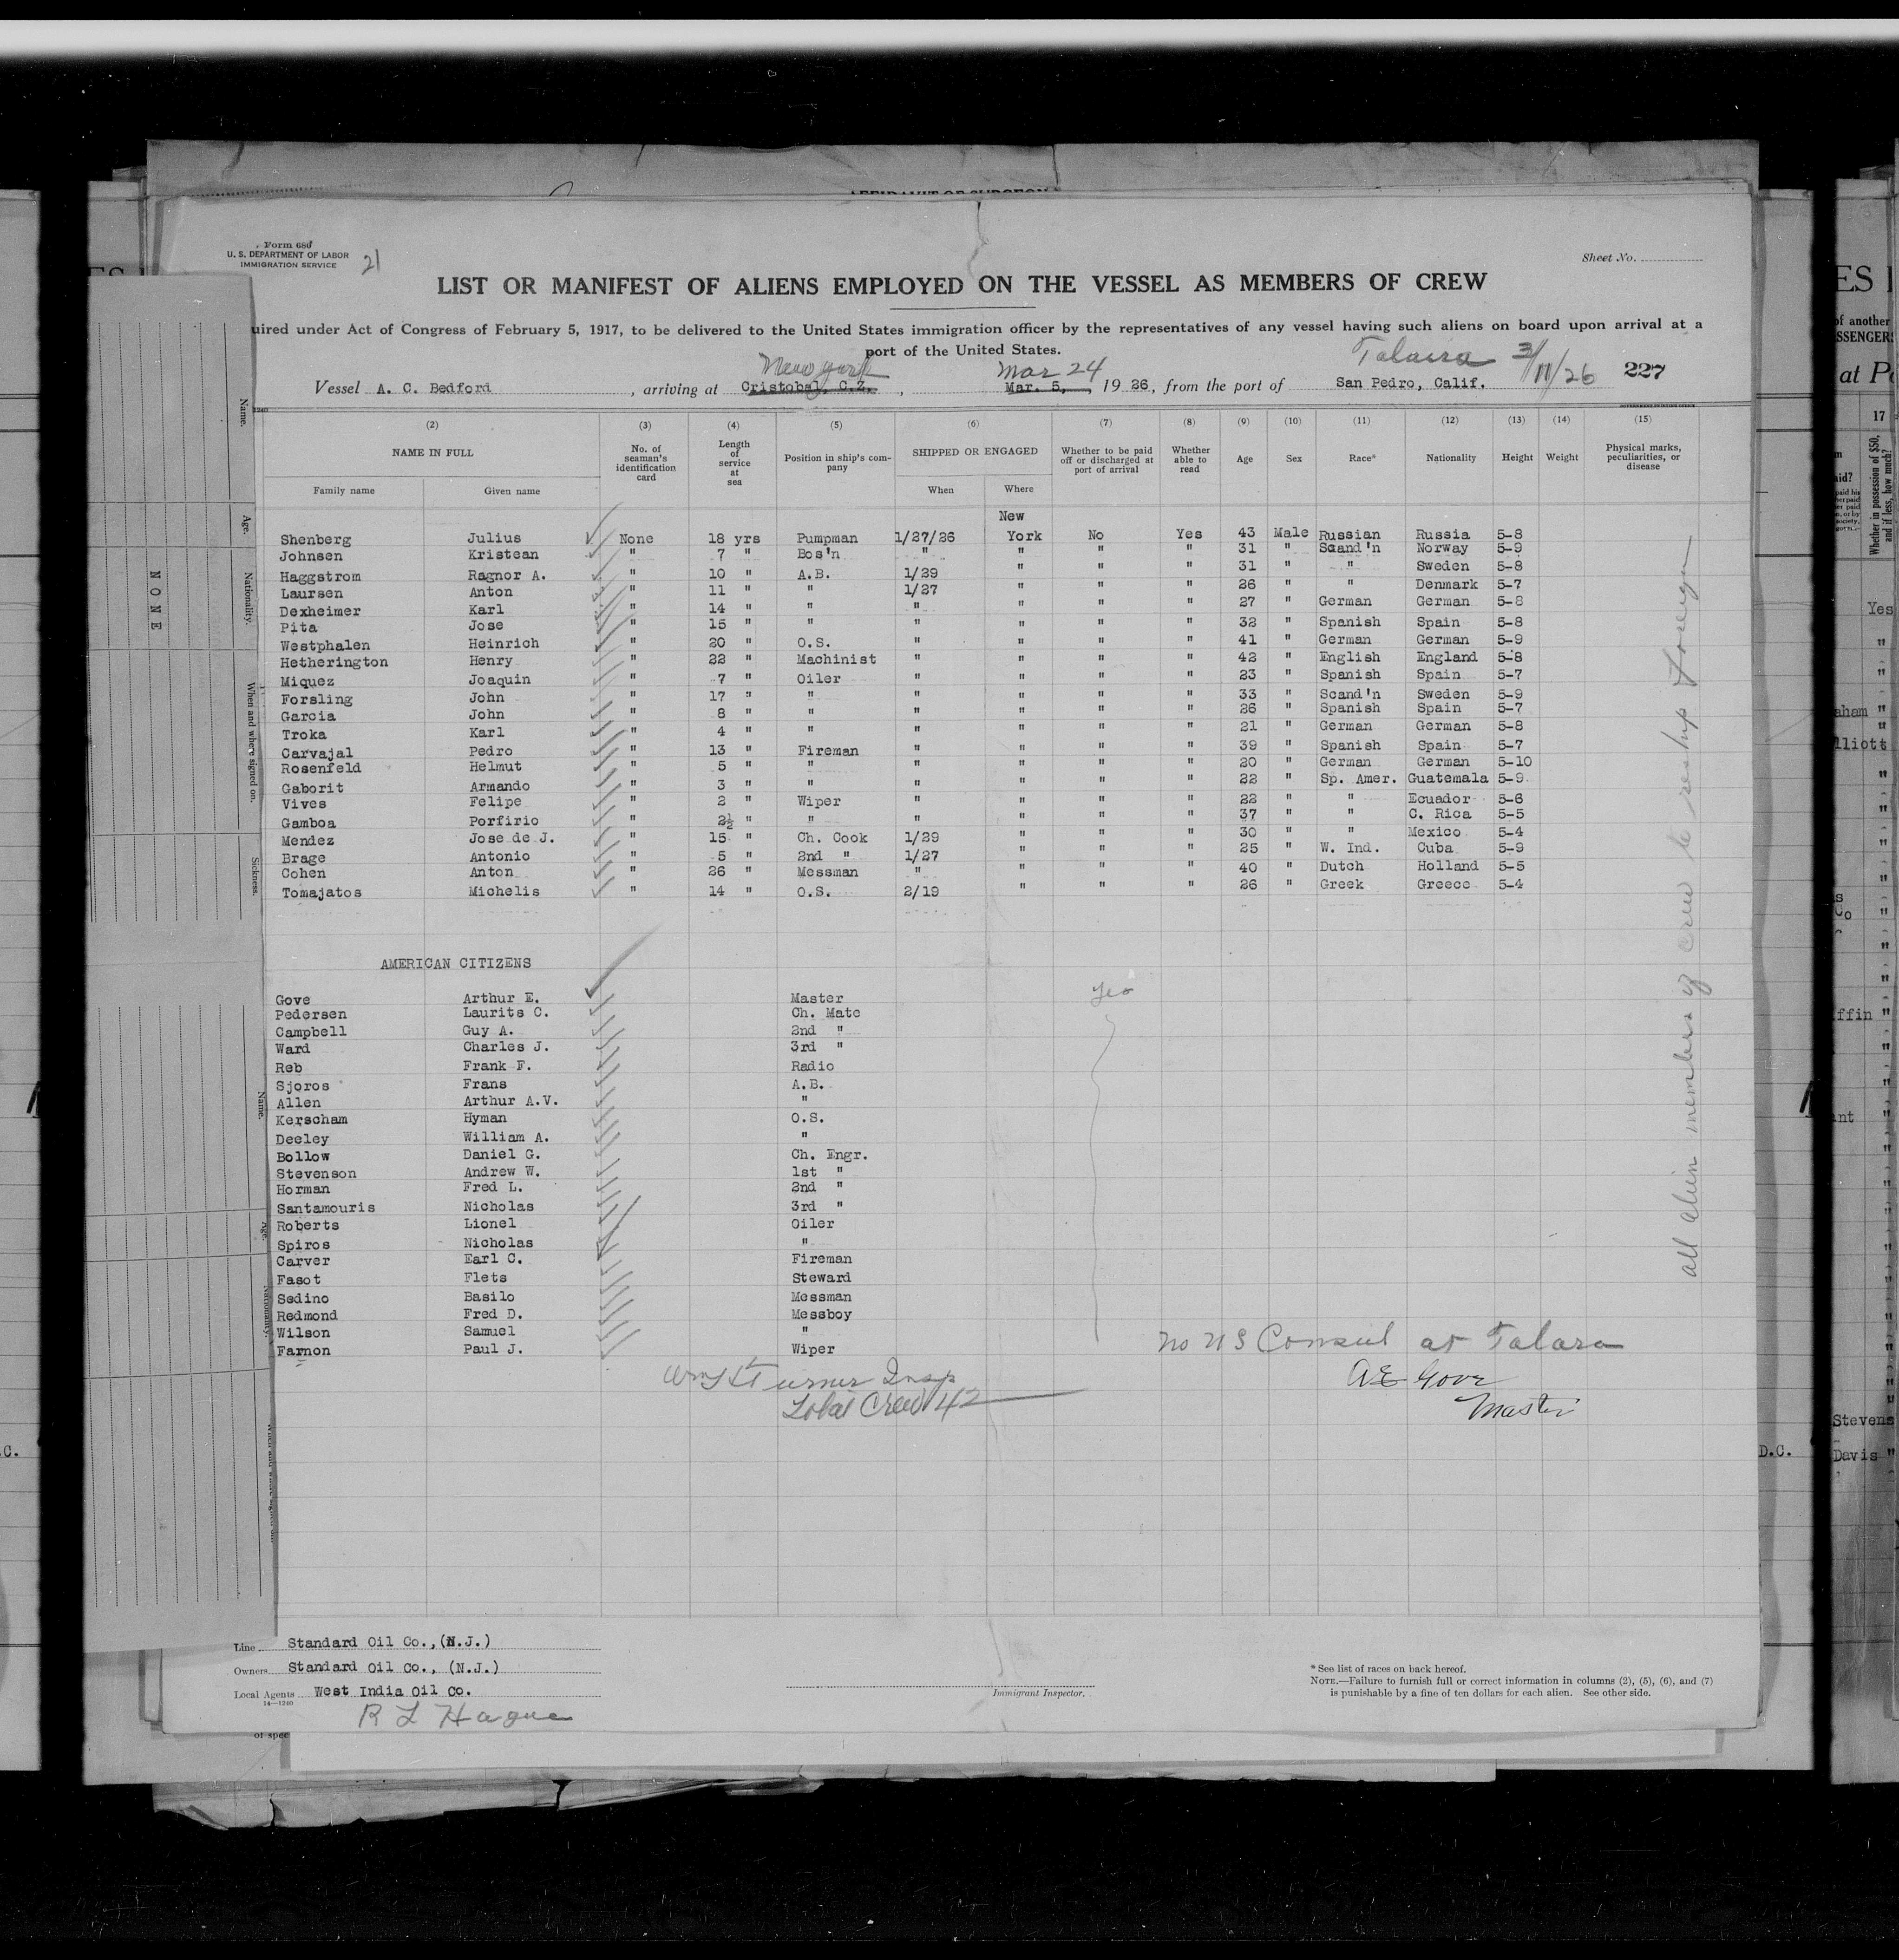 AFFIDAVIT OF SURGEON
Form 680
U. S. DEPARTMENT OF LABOR
IMMIGRATION SERVICE
21
Sheet No.
LIST OR MANIFEST OF ALIENS EMPLOYED ON THE VESSEL AS MEMBERS OF CREW
uired under Act of Congress of February 5, 1917, to be delivered to the United States immigration officer by the representatives of any vessel having such aliens on board upon arrival at a
port of the United States.
New York Mar 24 Talara 3/11/26
Vessel A. C. Bedford, arriving at Cristobal, C.Z., Mar. 5, 1926, from the port of San Pedro, Calif. 227
(2) (3) (4) (5) (6) (7) (8) (9) (10) (11) (12) (13) (14) (15)
NAME IN FULL No. of seaman's identification card Length of service at sea Position in ship's company SHIPPED OR ENGAGED Whether to be paid off or discharged at port of arrival Whether able to read Age Sex Race* Nationality Height Weight Physical marks, peculiarities, or disease
Family name Given name When Where
New
Shenberg Julius None 18 yrs Pumpman 1/27/26 York No Yes 43 Male Russian Russia 5-8
Johnsen Kristean " 7 " Bos'n " " " " 31 " Scand'n Norway 5-9
Haggstrom Ragnor A. " 10 " A.B. 1/29 " " " 31 " " Sweden 5-8
Laursen Anton " 11 " " 1/27 " " " 26 " " Denmark 5-7
Dexheimer Karl " 14 " " " " " " 27 " German German 5-8
Pita Jose " 15 " " " " " " 32 " Spanish Spain 5-8
Westphalen Heinrich " 20 " O.S. " " " " 41 " German German 5-9
Hetherington Henry " 22 " Machinist " " " " 42 " English England 5-8
Miquez Joaquin " 7 " Oiler " " " " 23 " Spanish Spain 5-7
Forsling John " 17 " " " " " " 33 " Scand'n Sweden 5-9
Garcia John " 8 " " " " " " 26 " Spanish Spain 5-7
Troka Karl " 4 " " " " " " 21 " German German 5-8
Carvajal Pedro " 13 " Fireman " " " " 39 " Spanish Spain 5-7
Rosenfeld Helmut " 5 " " " " " " 20 " German German 5-10
Gaborit Armando " 3 " " " " " " 22 " Sp. Amer. Guatemala 5-9
Vives Felipe " 2 " Wiper " " " " 22 " " Ecuador 5-6
Gamboa Porfirio " 2½ " " " " " " 37 " " C. Rica 5-5
Mendez Jose de J. " 15 " Ch. Cook 1/29 " " " 30 " " Mexico 5-4
Brage Antonio " 5 " 2nd " 1/27 " " " 25 " W. Ind. Cuba 5-9
Cohen Anton " 26 " Messman " " " " 40 " Dutch Holland 5-5
Tomajatos Michelis " 14 " O.S. 2/19 " " " 26 " Greek Greece 5-4
AMERICAN CITIZENS
Gove Arthur E. Master Yes
Pedersen Laurits C. Ch. Mate
Campbell Guy A. 2nd "
Ward Charles J. 3rd "
Reb Frank F. Radio
Sjoros Frans A.B.
Allen Arthur A.V. "
Kerscham Hyman O.S.
Deeley William A. "
Bollow Daniel G. Ch. Engr.
Stevenson Andrew W. 1st "
Horman Fred L. 2nd "
Santamouris Nicholas 3rd "
Roberts Lionel Oiler
Spiros Nicholas "
Carver Earl C. Fireman
Fasot Flets Steward
Sedino Basilo Messman
Redmond Fred D. Messboy
Wilson Samuel "
Farnon Paul J. Wiper
all alien members of crew to reship foreign
No US Consul at Talara
A E Gove
Master
Turner Insp
Total Crew 42
Line Standard Oil Co.,(N.J.)
Owners Standard Oil Co., (N.J.)
Local Agents West India Oil Co.
14—1240
R L Hague
Immigrant Inspector.
* See list of races on back hereof.
NOTE.—Failure to furnish full or correct information in columns (2), (5), (6), and (7)
is punishable by a fine of ten dollars for each alien. See other side.
of spec
Name.
Age.
Nationality.
NONE
When and where signed on.
Sickness.
Name.
Age.
Nationality.
ES
of another
SSENGERS
at Po
17
Whether in possession of $50, and if less, how much?
Yes
aham "
lliott
ffin "
ant "
Stevens
Davis "
D.C.
.C.